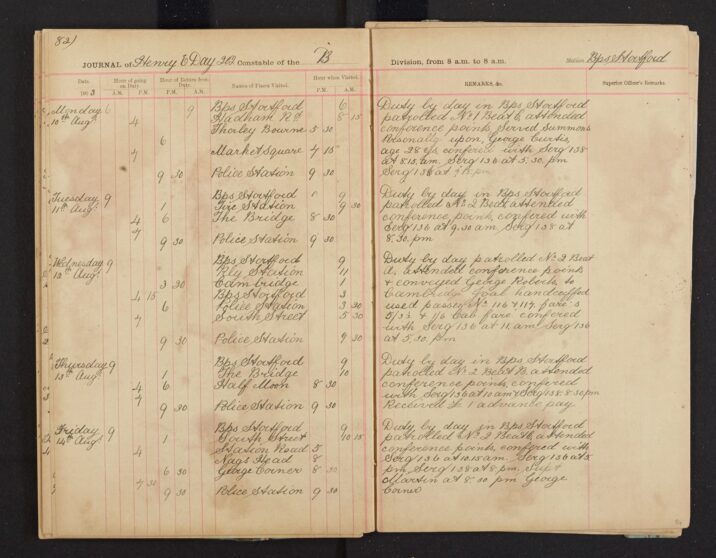 82)
JOURNAL of Henry E Day 202 Constable of the B
Date. Hour of going on Duty. Hour of Return from Duty. Names of Places Visited. Hour when Visited.
190 3 A.M. P.M. P.M. A.M. P.M. A.M.
Monday 6 9 Bps Stortford 6
10th Augt 4 Hadham Rd 8 15
Thorley Bourne 5 30
6
7 Market Square 7 15
9 30 Police Station 9 30
Tuesday 9 Bps Stortford 9
11th Augt 1 Fire Station 9 30
4 6 The Bridge 8 30
7
9 30 Police Station 9 30
Wednesday 9 Bps Stortford 9
12th Augt Rly Station 11
3 30 Cambridge 1
4 15 Bps Stortford 3
6 Police Station 3 30
7 South Street 5 30
9 30 Police Station 9 30
Thursday 9 Bps Stortford 9
13th Augt 1 The Bridge 10
4 6 Half Moon 8 30
7
9 30 Police Station 9 30
Friday 9 Bps Stortford 9
14th Augt 1 South Street 10 15
4 Station Road 5
Nags Head 8
6 30 George Corner 8 30
7 30
9 30 Police Station 9 30
Division, from 8 a.m. to 8 a.m. Station Bps Stortford
REMARKS, &c. Superior Officer's Remarks.
Duty by day in Bps Stortford
patrolled No 1 Beat attended
conference points Served Summons
Personally upon George Curtis
age 28 yrs confered with Serg 138
at 8.15. am. Serg 136 at 5.30. pm
Serg 136 at
Duty by day in Bps Stortford
patrolled No 2 Beat attended
conference points confered with
Serg 136 at 9.30 am. Serg 138 at
8.30. pm
Duty by day patrolled No 2 Beat
attended conference points
& conveyed George Roberts to
Cambridge Goal handcuffed
used passes No 116 & 117. fare's
5/3½ & 1/6 Cab fare confered
with Serg 136 at 11 am Serg 136
at 5.30. pm
Duty by day in Bps Stortford
patrolled No 2 Beat B attended
conference points confered
with Serg 136 at 10 am & Serg 138. 8.30 pm
Received £ 1 advance pay
Duty by day in Bps Stortford
patrolled No 2 Beat attended
conference points confered with
Serg 136 at 10.15 am. Serg 136 at 5
pm Serg 138 at 8 pm. Supt
Martin at 8 30 pm George
Corner